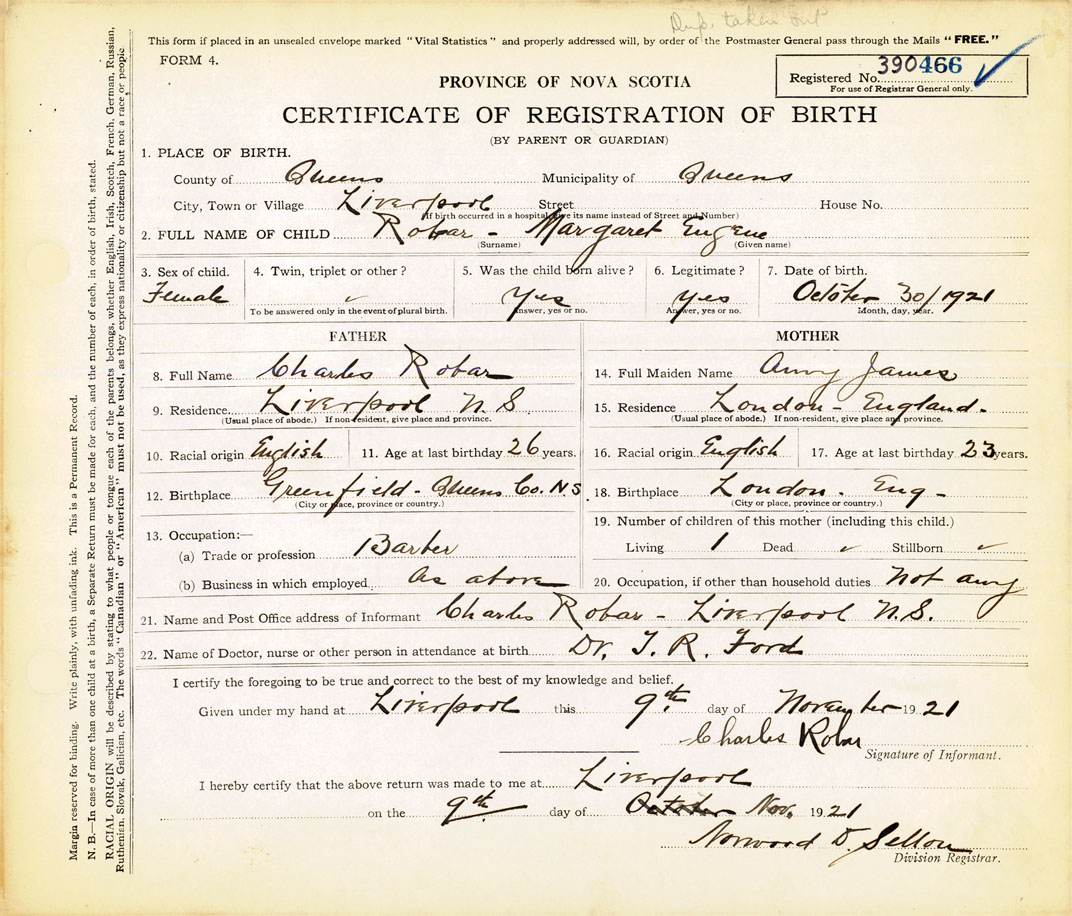 Dup. taken out
This form if placed in an unsealed envelope marked "Vital Statistics" and properly addressed will, by order of the Postmaster General pass through the Mails "FREE."
FORM 4.
Registered No. 390466
For use of Registrar General only.
PROVINCE OF NOVA SCOTIA
CERTIFICATE OF REGISTRATION OF BIRTH
(BY PARENT OR GUARDIAN)
1. PLACE OF BIRTH.
County of Queens Municipality of Queens
City, Town or Village Liverpool Street House No.
(If birth occurred in a hospital, give its name instead of Street and Number)
2. FULL NAME OF CHILD Robar - Margaret Eugene
(Surname) (Given name)
3. Sex of child. 4. Twin, triplet or other? 5. Was the child born alive? 6. Legitimate? 7. Date of birth.
Female ✓ Yes Yes October 30/1921
To be answered only in the event of plural birth. Answer, yes or no. Answer, yes or no. Month, day, year.
FATHER
8. Full Name Charles Robar
9. Residence Liverpool N.S.
(Usual place of abode.) If non-resident, give place and province.
10. Racial origin English 11. Age at last birthday 26 years.
12. Birthplace Greenfield - Queens Co. N.S.
(City or place, province or country.)
13. Occupation:—
(a) Trade or profession Barber
(b) Business in which employed As above
MOTHER
14. Full Maiden Name Amy James
15. Residence London - England.
(Usual place of abode.) If non-resident, give place and province.
16. Racial origin English 17. Age at last birthday 23 years.
18. Birthplace London. Eng -
(City or place, province or country.)
19. Number of children of this mother (including this child.)
Living 1 Dead ✓ Stillborn ✓
20. Occupation, if other than household duties Not any
21. Name and Post Office address of Informant Charles Robar - Liverpool N.S.
22. Name of Doctor, nurse or other person in attendance at birth Dr. T. R. Ford
I certify the foregoing to be true and correct to the best of my knowledge and belief.
Given under my hand at Liverpool this 9th. day of November 1921
Charles Robar
Signature of Informant.
I hereby certify that the above return was made to me at Liverpool
on the 9th. day of October Nov. 1921
Norwood D. Sellon
Division Registrar.
Margin reserved for binding. Write plainly, with unfading ink. This is a Permanent Record.
N. B.—In case of more than one child at a birth, a Separate Return must be made for each, and the number of each, in order of birth, stated.
RACIAL ORIGIN will be described by stating to what people or tongue each of the parents belongs, whether English, Irish, Scotch, French, German, Russian,
Ruthenian, Slovak, Galician, etc. The words "Canadian" or "American" must not be used, as they express nationality or citizenship but not a race or people.